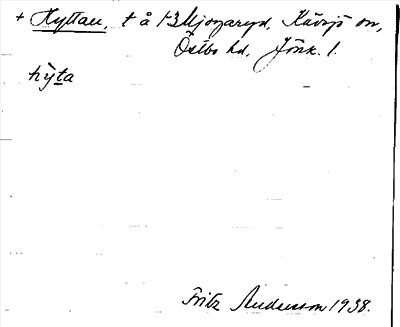 + Hyttan, t å 13 Mjogaryd, Kävsjö sn,
Östbo hd, Jönk. l.
hỳta
Fritz Andersson 1938.